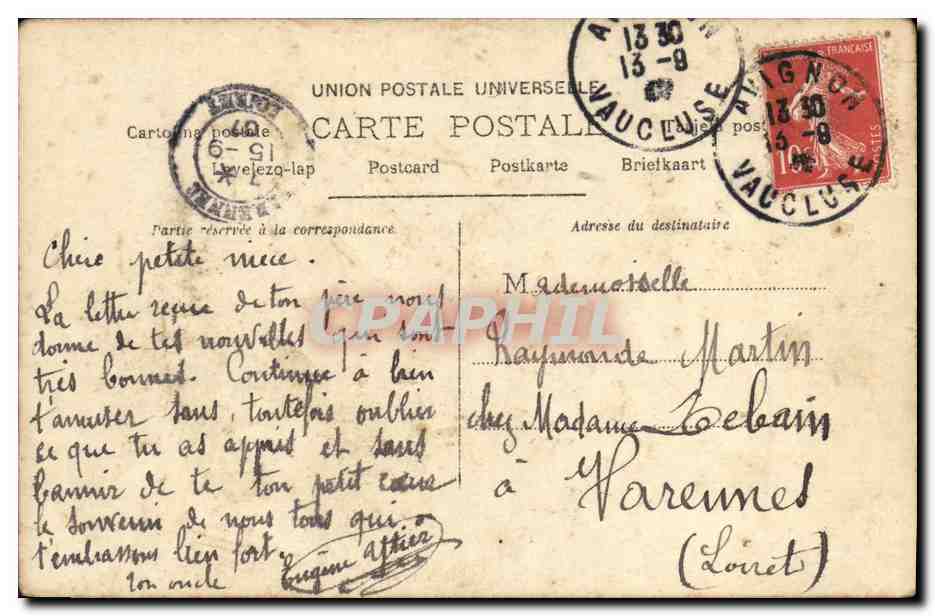 UNION POSTALE UNIVERSELLE
CARTE POSTALE
Cartolina postale
Tarjeta post
Levelezq-lap Postcard Postkarte Briefkaart
AVIGNON
13 30
13 -9
VAUCLUSE
AVIGNON
13 30
13 -9
VAUCLUSE
FRANCAISE
10c
POSTES
VARENNES
7 *
15 -9
07
LOIRET
Partie réservée à la correspondance
Adresse du destinataire
Chère petite nièce.
La lettre reçue de ton père nous
donne de tes nouvelles qui sont
très bonnes. Continue à bien
t'amuser sans toutefois oublier
ce que tu as appris et sans
bannir de te ton petit cœur
le souvenir de nous tous qui
t'embrassons bien fort.
ton oncle
Eugène
Mademoiselle
Raymonde Martin
chez Madame Lebain
à Varennes
(Loiret)
CPAPHIL